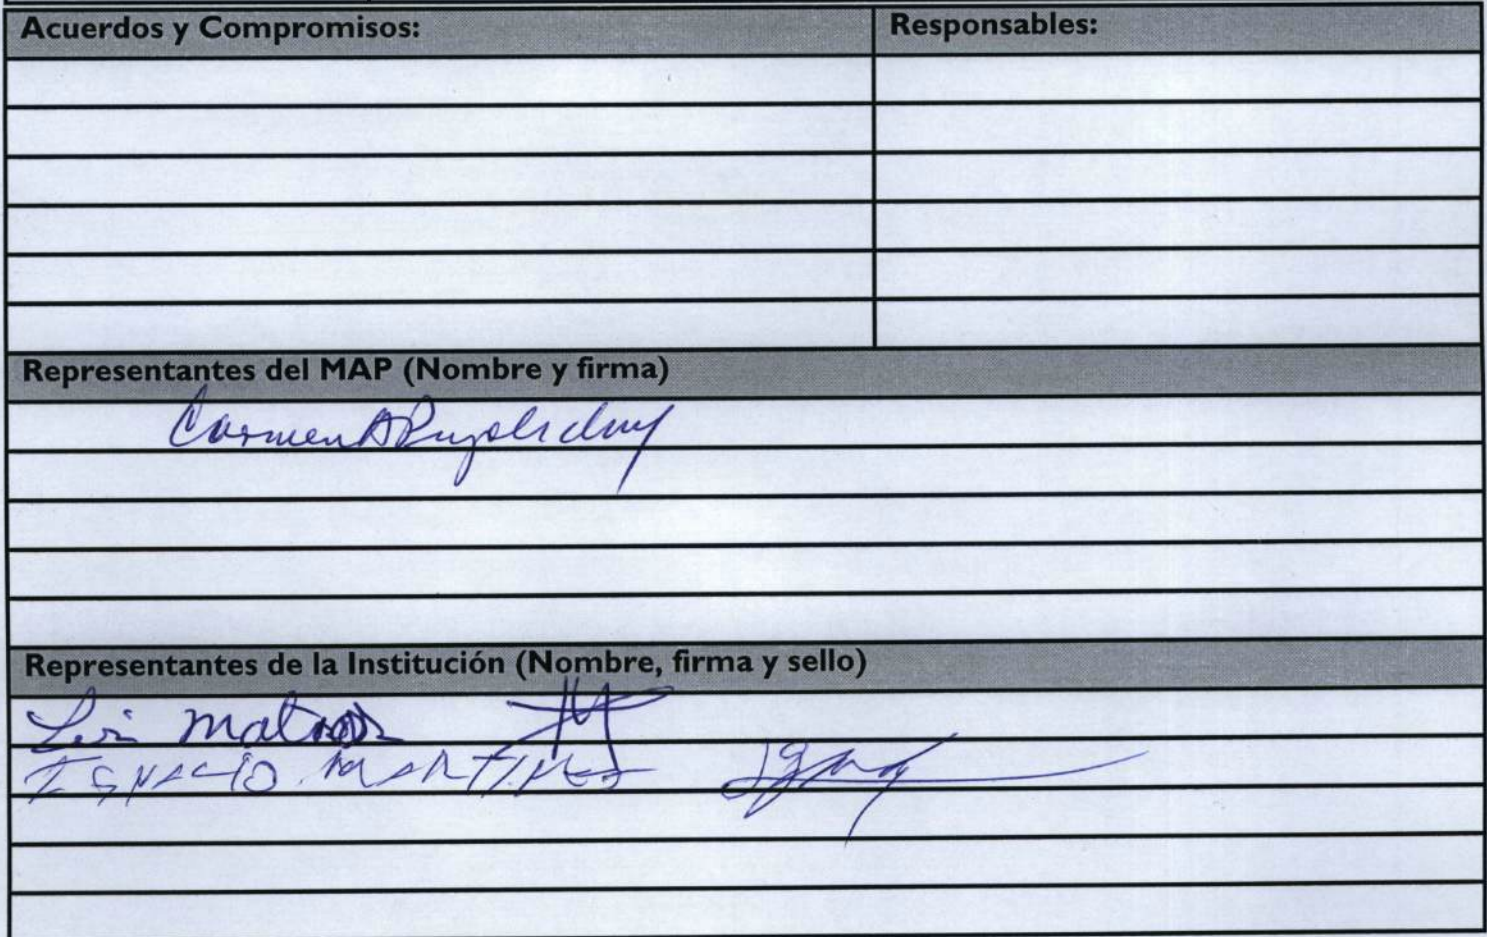 Acuerdos y Compromisos:
Responsables:
Representantes del MAP (Nombre y firma)
Carmen A
Representantes de la Institución (Nombre, firma y sello)
Luis Matos
IGNACIO MARTINEZ